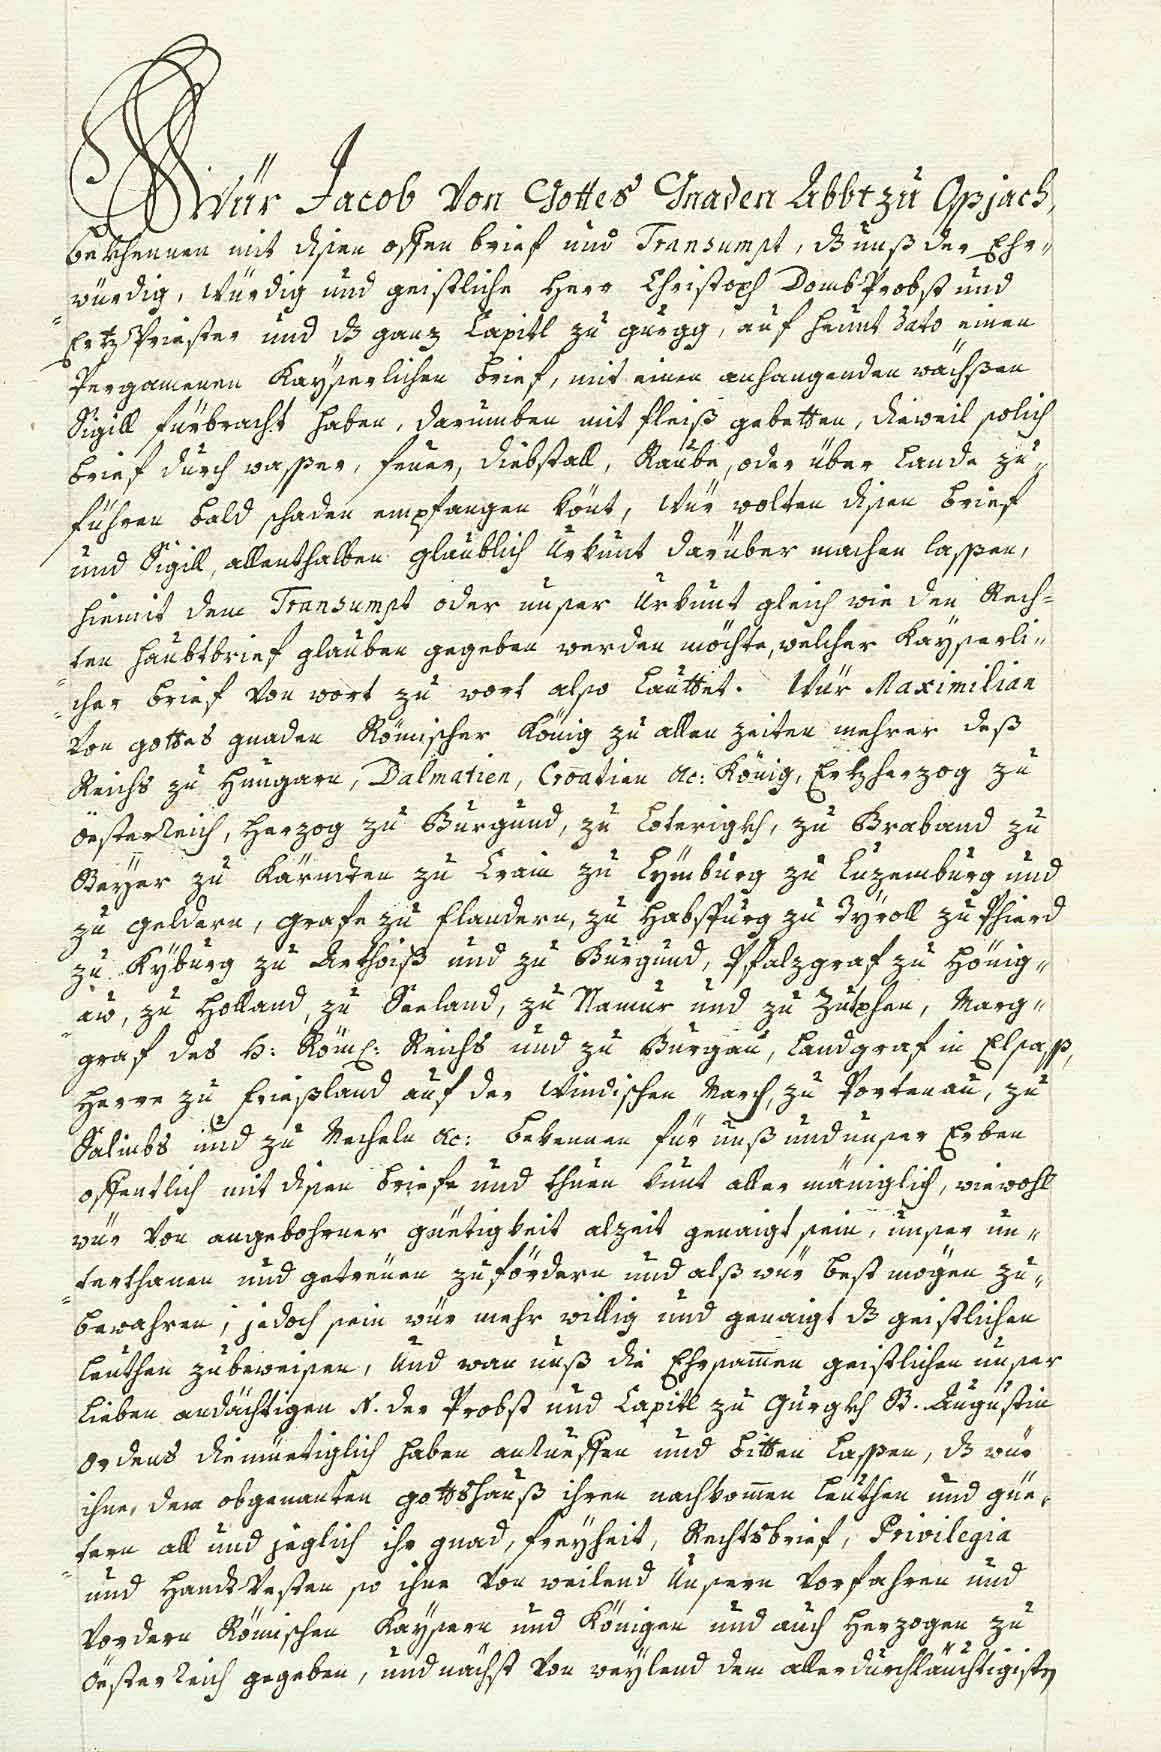 Wür Jacob Von Gottes Gnaden Abbt zu Ossjach,
bekhennen mit disen offen brief und Transumpt, dß unß der Ehr-
würdig, Würdig und geistliche Herr Christoph DombProbst und
ErtzPriester und dß ganz Capitl zu gurgg, auf heunt dato einen
Pergamenen Kayserlichen brief, mit einen anhangenden wächßen
Sigill fürbracht haben, darumben mit fleiß gebetten, dieweil solich
brief durch wasser, feuer, diebstall, Raube, oder über Lande zu-
führen bald schaden empfangen könt, Wür wolten disen brief
und Sigill, allenthalben glaublich Urkunt darüber machen lassen,
hiemit dem Transumpt oder unser Urkunt gleich wie den Rech-
ten haubtbrief glauben gegeben werden möchte, welcher Kayserli-
cher brief von wort zu wort also lauttet. Wür Maximilian
Von gottes gnaden Römischer König zu allen zeiten mehrer deß
Reichs zu Hungarn, Dalmatien, Croatien &c: König, Ertzherzog zu
Österreich, Herzog zu Burgund, zu Loterigkh, zu Braband zu
Steyer zu Kärndten zu Crain zu Lymburg zu Luzemburg und
zu geldern, grafe zu flandern, zu Habspurg zu Tyroll zu Phierd
zu Kyburg zu Arthoiß und zu Burgund, Pfalzgraf zu Hönig-
au, zu Holland, zu Seeland, zu Namur und zu Zutphen, Marg-
graf des H: Röm: Reichs und zu Burgau, Landgraf in Elsass,
Herre zu frießland auf der Windischen March, zu Portenau, zu
Salinbs und zu Mecheln &c: bekennen für unß und unser Erben
offentlich mit disen briefe und thuen kunt aller mäniglich, wiewohl
wür von angebohrner güetigkeit alzeit genaigt sein, unser un-
terthanen und getreuen zufördern und alß wür best mögen zu-
bewahren, jedoch sein wür mehr willig und genaigt dß geistlichen
Leuthen zubeweisen, Und wan unß die Ehrsamen geistlichen unser
Lieben andächtigen N. der Probst und Capitl zu Gurgkh St. Augustin
ordens diemüetiglich haben anrueffen und bitten lassen, dß wür
ihne, dem obgenanten gottshauß ihren nachkomen Leuthen und güe-
tern all und jeglich ihr gnad, freyheit, Rechtsbrief, Privilegia
und HandtVesten so ihne von weilend Unsern Vorfahren und
Vordern Römischen Kaysern und Königen und auch Herzogen zu
Österreich gegeben, und nächst von weylend dem allerdurchläuchtigisten